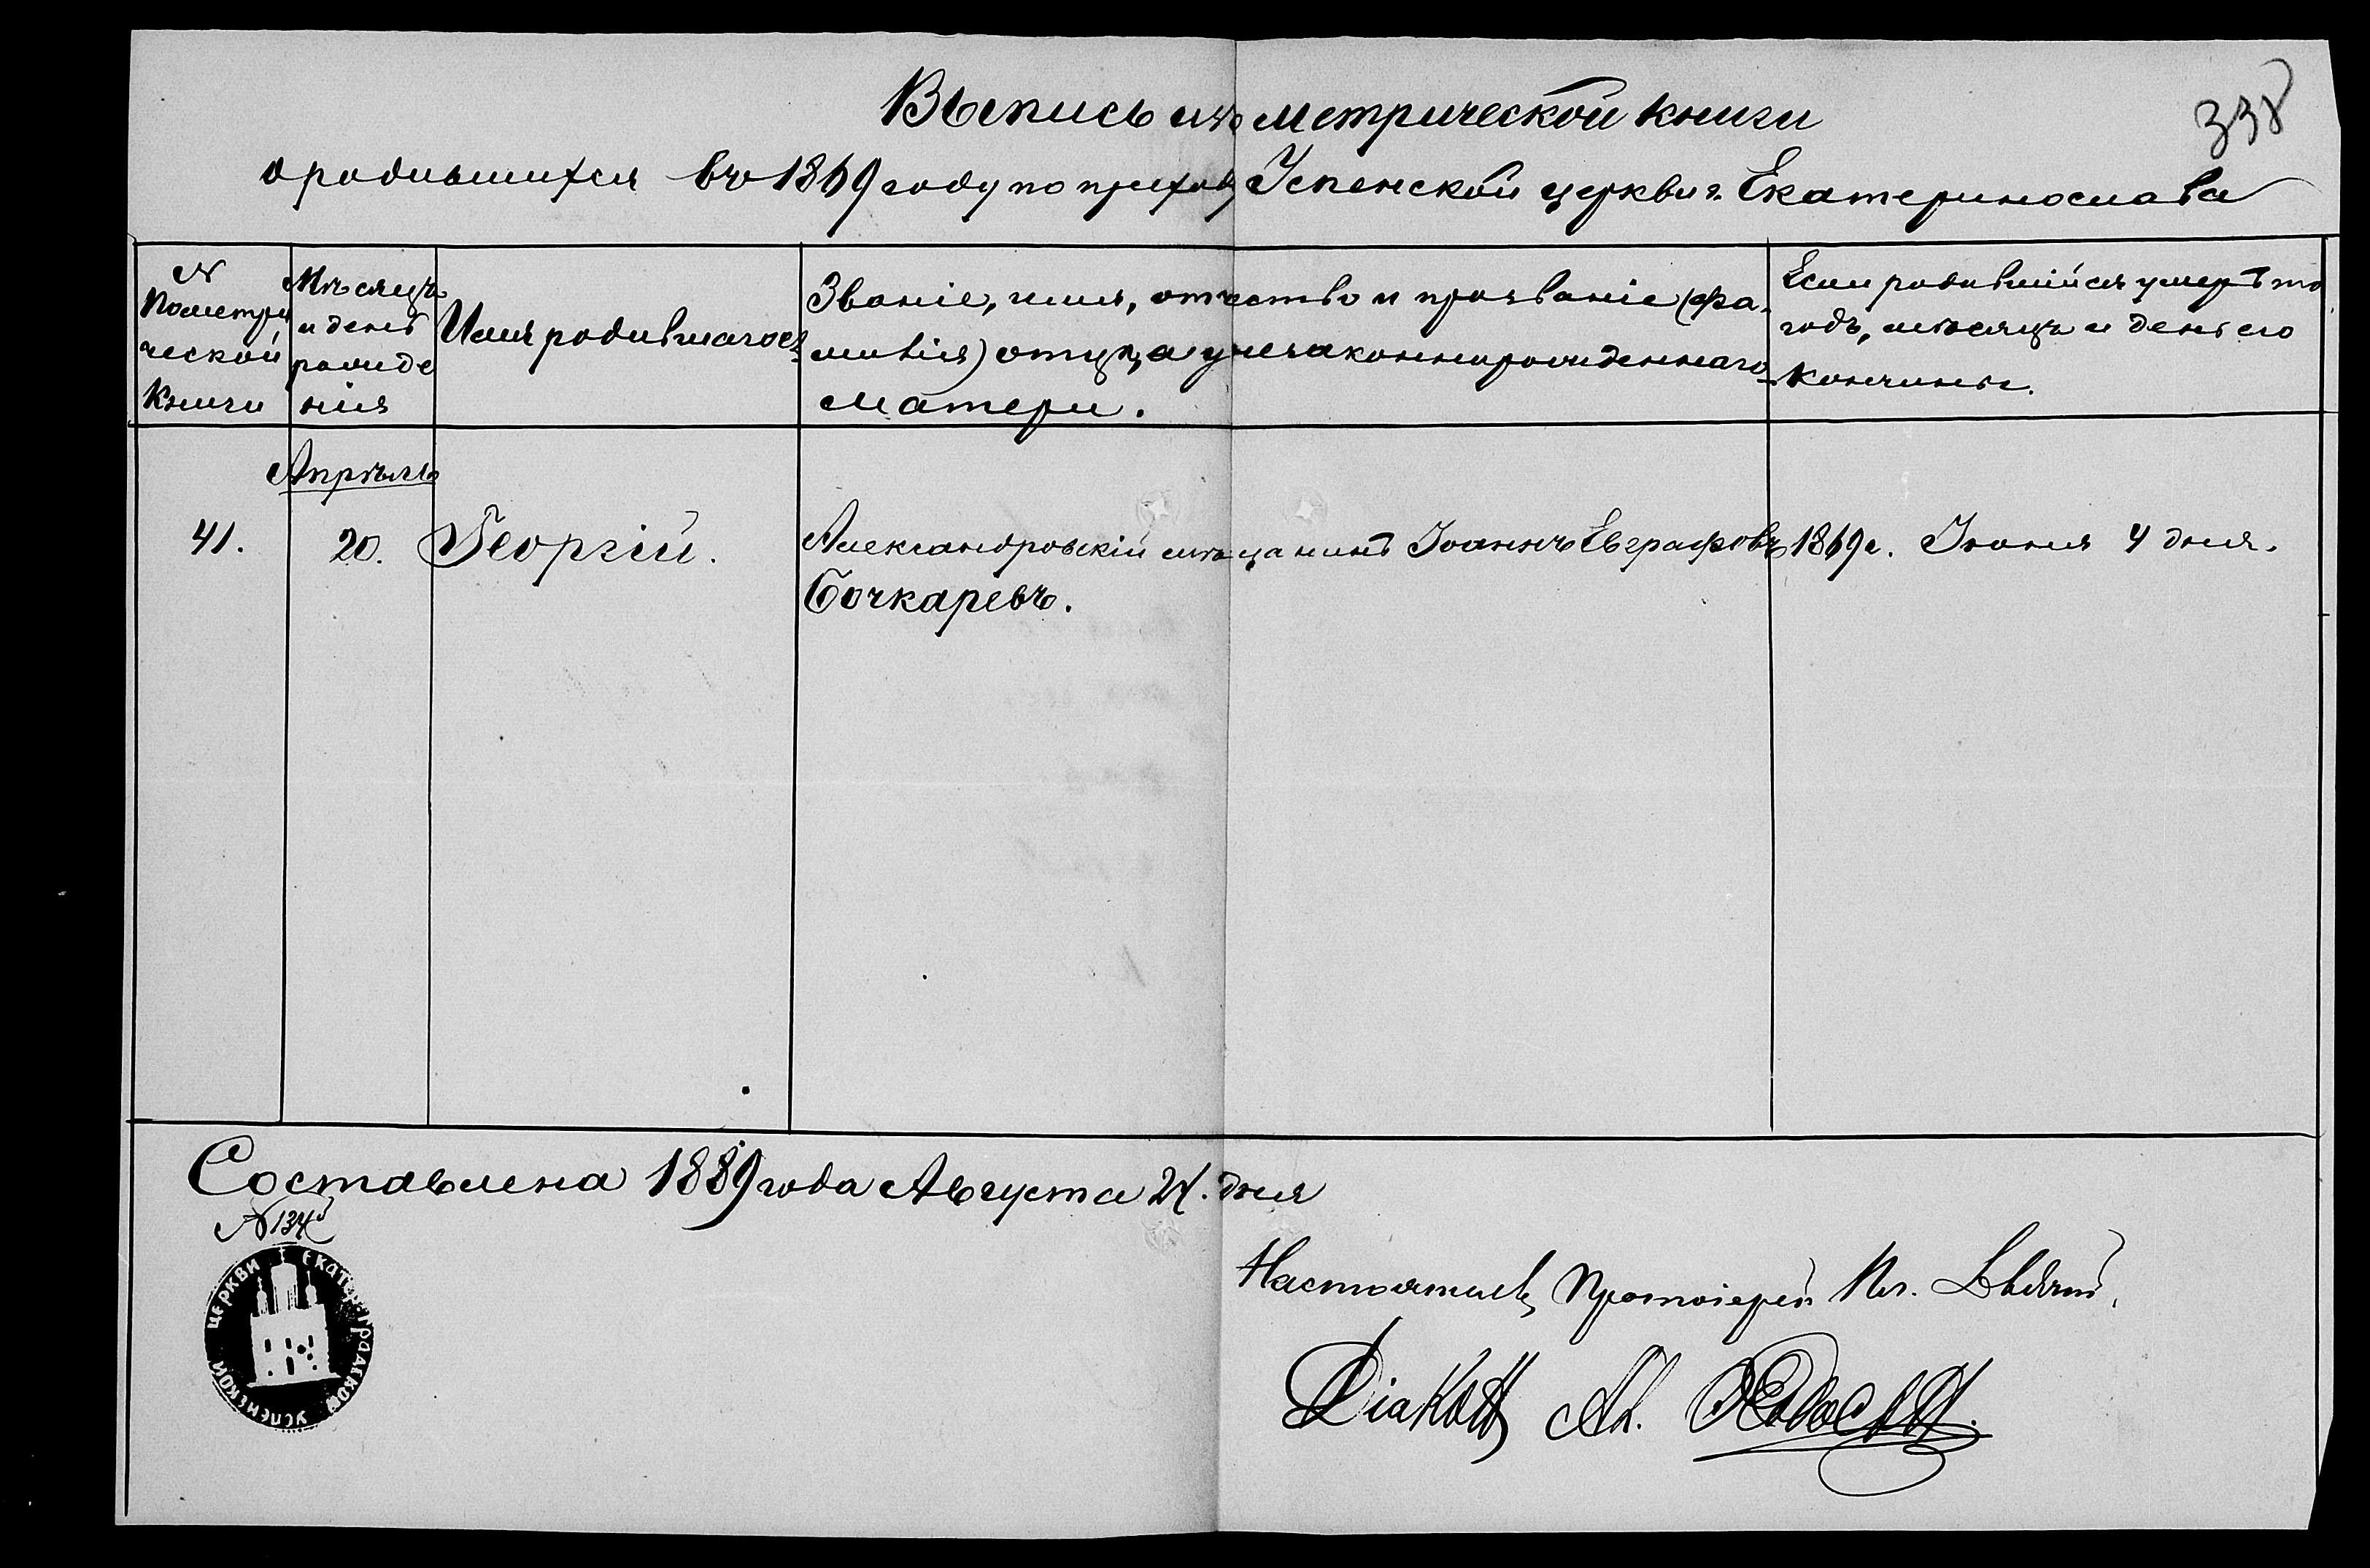 338
Выпись изъ метрической книги
о родившихся въ 1869 году по приходу Успенской церкви г. Екатеринослава
№
по метри
ческой
книги
Мѣсяцъ
и день
рожде
нія
Имя родившагося
Званіе, имя, отчество и прозваніе (фа-
милія) отца, а у незаконнорожденнаго
матери.
Если родившійся умеръ то
годъ, мѣсяцъ и день его
кончины.
Апрѣль
41.
20.
Георгій.
Александровскій мѣщанинъ Іоаннъ Евграфовъ
Бочкаревъ.
1869 г. Іюня 4 дня.
Составлена 1889 года Августа 21. дня
№ 134
ЦЕРКВИ УСПЕНСКОЙ
Настоятель, Протоіерей
Діаконъ